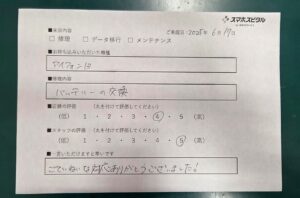 スマホスピタル
■来店内容
ご来店日 2025年 6月 17日
□ 修理 □ データ移行 □ メンテナンス
■お持ち込みいただいた機種
アイフォン13
■修理内容
バッテリーの交換
■店舗の評価 (丸を付けて評価してください)
(低) 1 ・ 2 ・ 3 ・ 4 ・ 5 (高)
■スタッフの評価 (丸を付けて評価してください)
(低) 1 ・ 2 ・ 3 ・ 4 ・ 5 (高)
■一言いただけますと幸いです
ていねいな対応ありがとうございました!